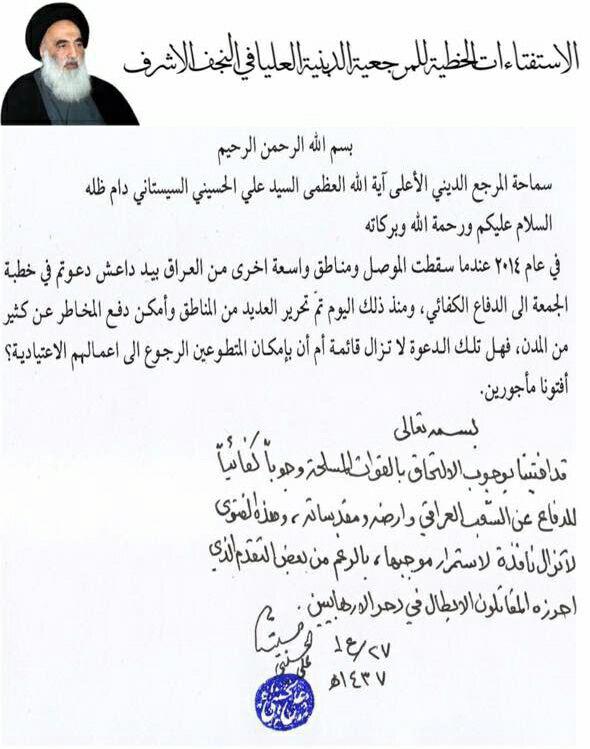 الاستفتاءات الخطية للمرجعية الدينية العليا في النجف الاشرف
بسم الله الرحمن الرحيم
سماحة المرجع الديني الأعلى آية الله العظمى السيد علي الحسيني السيستاني دام ظله
السلام عليكم ورحمة الله وبركاته
في عام ٢٠١٤ عندما سقطت الموصل ومناطق واسعة اخرى من العراق بيد داعش دعوتم في خطبة
الجمعة الى الدفاع الكفائي، ومنذ ذلك اليوم تمّ تحرير العديد من المناطق وأمكن دفع المخاطر عن كثير
من المدن، فهل تلك الدعوة لا تزال قائمة أم أن بإمكان المتطوعين الرجوع الى اعمالهم الاعتيادية؟
أفتونا مأجورين.
بسمه تعالى
قد افتينا بوجوب الالتحاق بالقوات المسلحة وجوباً كفائياً
للدفاع عن الشعب العراقي وارضه ومقدساته، وهذه الفتوى
لا تزال نافذة لاستمرار موجبها، بالرغم من بعض التقدم الذي
احرزه المقاتلون الابطال في دحر الارهابيين.
علي الحسيني
٢٧/ع١
١٤٣٧هـ